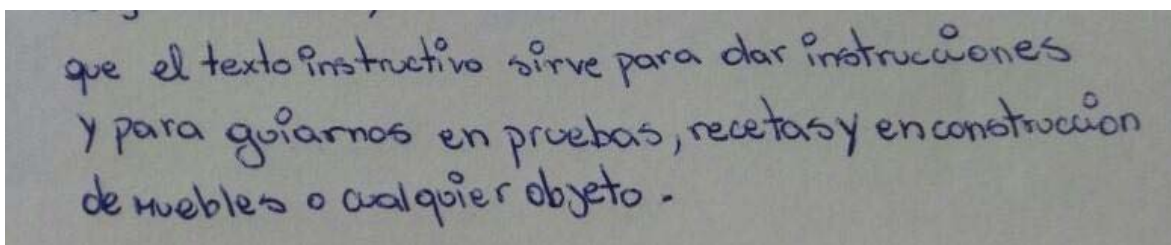 que el texto instructivo sirve para dar instrucciones
y para guiarnos en pruebas, recetas y en construcción
de muebles o cualquier objeto.